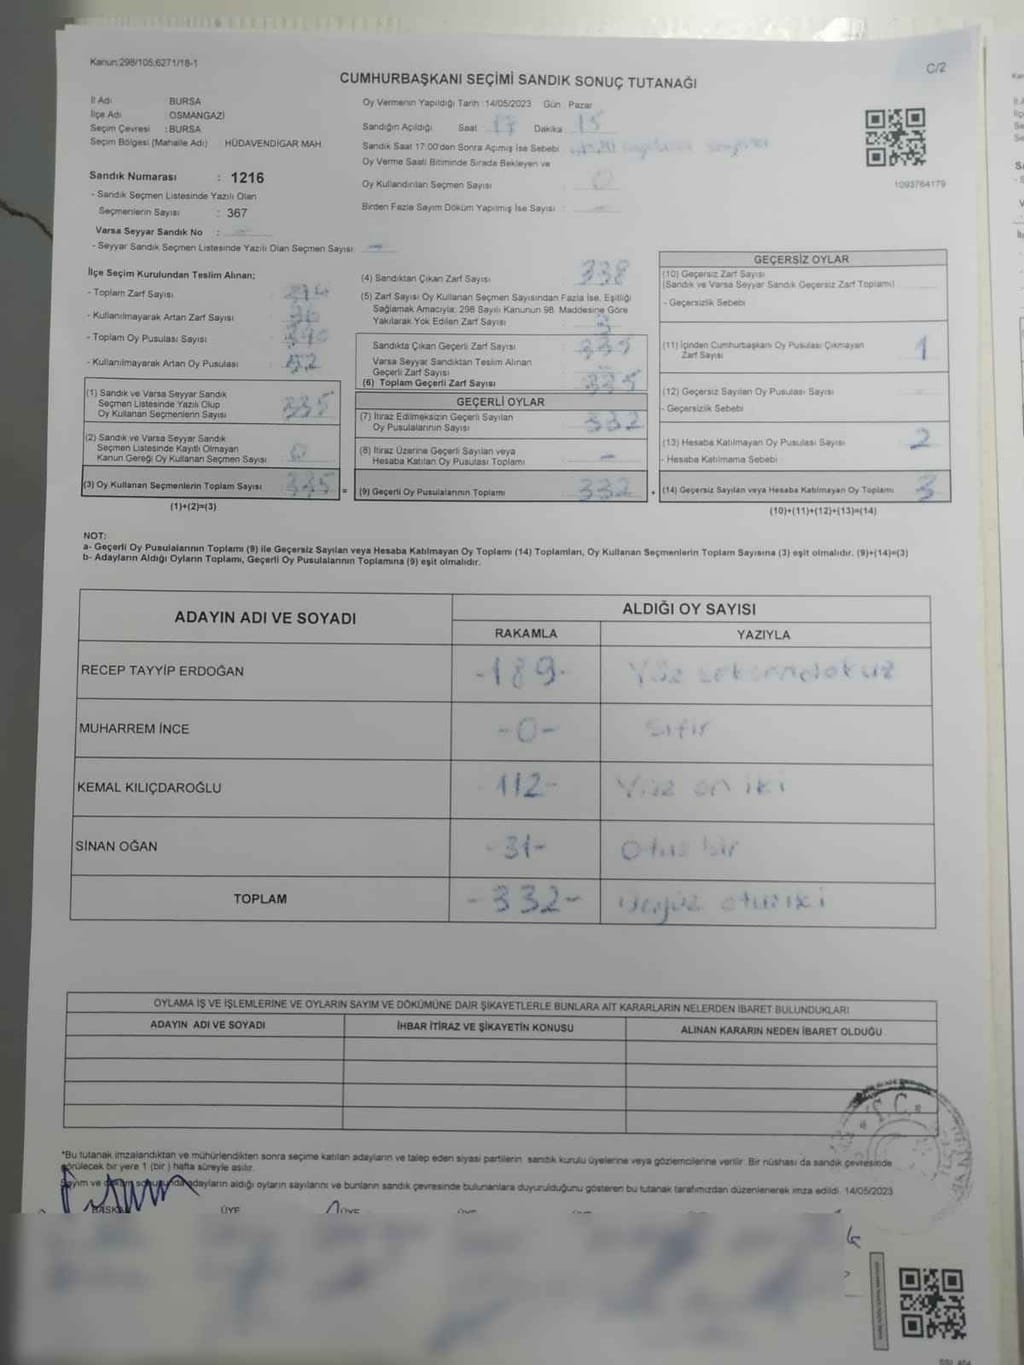 Kanun:298/105,6271/18-1
C/2
CUMHURBAŞKANI SEÇİMİ SANDIK SONUÇ TUTANAĞI
İl Adı BURSA
İlçe Adı OSMANGAZİ
Seçim Çevresi : BURSA
Seçim Bölgesi (Mahalle Adı) HÜDAVENDİGAR MAH
Sandık Numarası : 1216
- Sandık Seçmen Listesinde Yazılı Olan
Seçmenlerin Sayısı : 367
Varsa Seyyar Sandık No : -
- Seyyar Sandık Seçmen Listesinde Yazılı Olan Seçmen Sayısı -
Oy Vermenin Yapıldığı Tarih 14/05/2023 Gün Pazar
Sandığın Açıldığı Saat 17 Dakika 15
Sandık Saat 17:00'dan Sonra Açımış İse Sebebi
Oy Verme Saati Bitiminde Sırada Bekleyen ve
Oy Kullandırılan Seçmen Sayısı : 0
Birden Fazla Sayım Döküm Yapılmış İse Sayısı : -
1093764179
İlçe Seçim Kurulundan Teslim Alınan;
- Toplam Zarf Sayısı
- Kullanılmayarak Artan Zarf Sayısı
- Toplam Oy Pusulası Sayısı
- Kullanılmayarak Artan Oy Pusulası
(1) Sandık ve Varsa Seyyar Sandık
Seçmen Listesinde Yazılı Olup
Oy Kullanan Seçmenlerin Sayısı 335
(2) Sandık ve Varsa Seyyar Sandık
Seçmen Listesinde Kayıtlı Olmayan
Kanun Gereği Oy Kullanan Seçmen Sayısı 0
(3) Oy Kullanan Seçmenlerin Toplam Sayısı 335
(1)+(2)=(3)
(4) Sandıktan Çıkan Zarf Sayısı 338
(5) Zarf Sayısı Oy Kullanan Seçmen Sayısından Fazla İse, Eşitliği
Sağlamak Amacıyla; 298 Sayılı Kanunun 98. Maddesine Göre
Yakılarak Yok Edilen Zarf Sayısı 3
Sandıkta Çıkan Geçerli Zarf Sayısı 335
Varsa Seyyar Sandıktan Teslim Alınan
Geçerli Zarf Sayısı
(6) Toplam Geçerli Zarf Sayısı 335
GEÇERLİ OYLAR
(7) İtiraz Edilmeksizin Geçerli Sayılan
Oy Pusulalarının Sayısı 332
(8) İtiraz Üzerine Geçerli Sayılan veya
Hesaba Katılan Oy Pusulası Toplamı -
= (9) Geçerli Oy Pusulalarının Toplamı 332 +
GEÇERSİZ OYLAR
(10) Geçersiz Zarf Sayısı
(Sandık ve Varsa Seyyar Sandık Geçersiz Zarf Toplamı)
- Geçersizlik Sebebi
(11) İçinden Cumhurbaşkanı Oy Pusulası Çıkmayan
Zarf Sayısı 1
(12) Geçersiz Sayılan Oy Pusulası Sayısı
- Geçersizlik Sebebi
(13) Hesaba Katılmayan Oy Pusulası Sayısı 2
- Hesaba Katılmama Sebebi
(14) Geçersiz Sayılan veya Hesaba Katılmayan Oy Toplamı 3
(10)+(11)+(12)+(13)=(14)
NOT:
a- Geçerli Oy Pusulalarının Toplamı (9) ile Geçersiz Sayılan veya Hesaba Katılmayan Oy Toplamı (14) Toplamları, Oy Kullanan Seçmenlerin Toplam Sayısına (3) eşit olmalıdır. (9)+(14)=(3)
b- Adayların Aldığı Oyların Toplamı, Geçerli Oy Pusulalarının Toplamına (9) eşit olmalıdır.
ADAYIN ADI VE SOYADI
ALDIĞI OY SAYISI
RAKAMLA YAZIYLA
RECEP TAYYİP ERDOĞAN -189- Yüz seksendokuz
MUHARREM İNCE -0- Sıfır
KEMAL KILIÇDAROĞLU -112- Yüz on iki
SİNAN OĞAN -31- Otuz bir
TOPLAM -332- Üçyüz otuz iki
OYLAMA İŞ VE İŞLEMLERİNE VE OYLARIN SAYIM VE DÖKÜMÜNE DAİR ŞİKAYETLERLE BUNLARA AİT KARARLARIN NELERDEN İBARET BULUNDUKLARI
ADAYIN ADI VE SOYADI İHBAR İTİRAZ VE ŞİKAYETİN KONUSU ALINAN KARARIN NEDEN İBARET OLDUĞU
T.C.
*Bu tutanak imzalandıktan ve mühürlendikten sonra seçime katılan adayların ve talep eden siyasi partilerin sandık kurulu üyelerine veya gözlemcilerine verilir. Bir nüshası da sandık çevresinde
görülecek bir yere 1 (bir) hafta süreyle asılır.
Sayım ve adayların aldığı oyların sayılarını ve bunların sandık çevresinde bulunanlara duyurulduğunu gösteren bu tutanak tarafımızdan düzenlenerek imza edildi. 14/05/2023
BAŞKAN ÜYE ÜYE